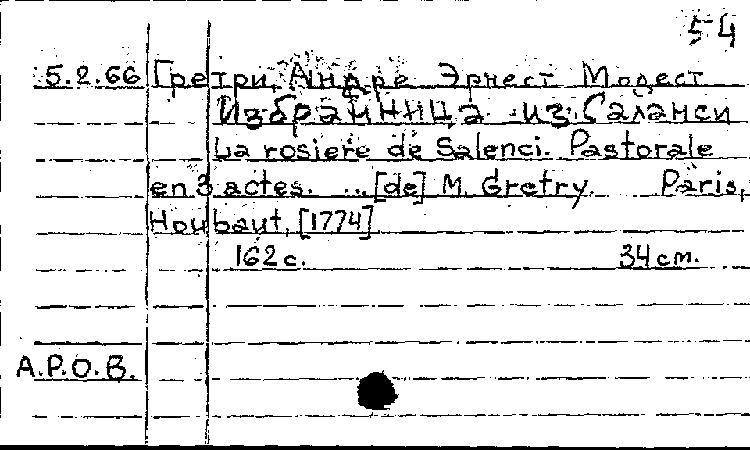 54
5.2.66 Гретри, Андре Эрнест Модест
Избранница из Саланси
La rosiere de Salenci. Pastorale
en 3 actes. ... [de] M. Gretry. Paris,
Houbaut, [1774]
162 с. 34 см.
А.Р.О.В.